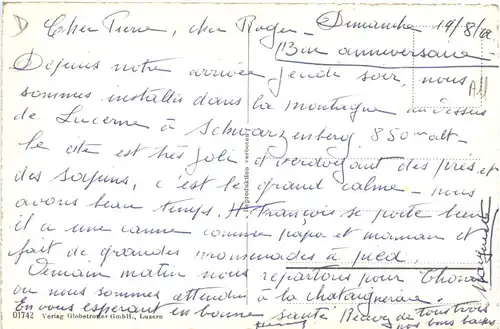 D Cher Pierre, cher Roger - Dimanche 14/8/
Bon anniversaire
Depuis notre arrivée jeudi soir, nous
sommes installés dans la montagne au dessus
de Lucerne à Schwarzenberg 850m alt -
le site est très joli, verdoyant des prés et
des sapins, c'est le grand calme - nous
avons beau temps. François se porte bien
il a une canne comme papa et maman et
fait de grandes promenades à pied.
Demain matin nous repartons pour
où nous sommes attendus à la chataigneraie.
En vous espérant en bonne santé de tous trois
Reproduktion verboten
01742 Verlag Globetrotter GmbH., Luzern